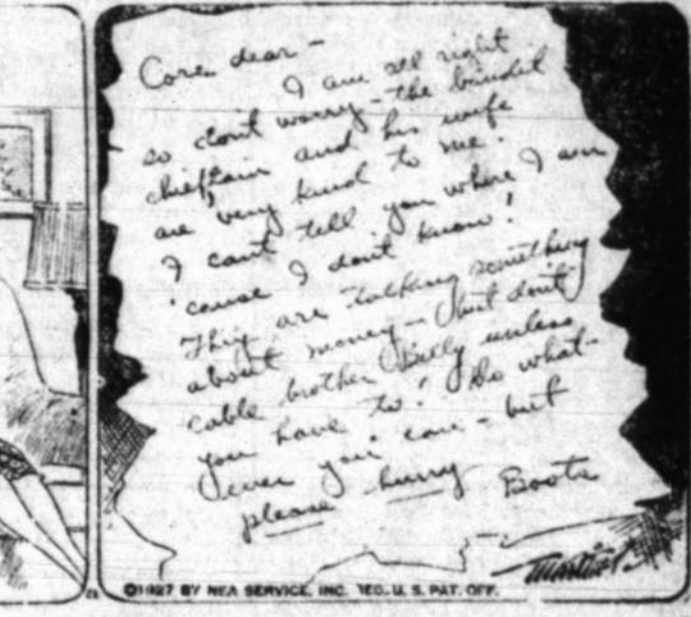 Cora dear -
I am all right
so don't worry - the bandit
chieftain and his wife
are very kind to me.
I can't tell you where I am
'cause I don't know!
They are talking something
about money - but don't
cable brother Billy unless
you have to! Do what-
ever you can - but
please hurry
Boots
Martin
©1927 BY NEA SERVICE, INC. REG. U. S. PAT. OFF.